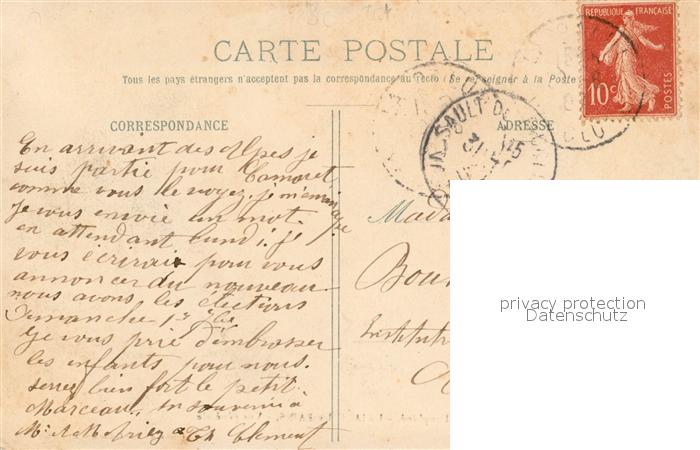 CARTE POSTALE
Tous les pays étrangers n'acceptent pas la correspondance au recto (Se renseigner à la Poste
RÉPUBLIQUE FRANÇAISE
10c
POSTES
CORRESPONDANCE
ADRESSE
SAULT DE
En arrivant des Alpes je
suis partie pour Camoret,
comme vous le voyez, je m'ennuie
je vous envoie un mot
en attendant lundi, je
vous écrirai pour vous
annoncer du nouveau
nous avons les élections
Dimanche 1er
Je vous prie d'embrasser
les enfants pour nous.
serrez bien fort le petit
Marceau, un souvenir à
Clément
Mada
Bou
Institut
privacy protection
Datenschutz